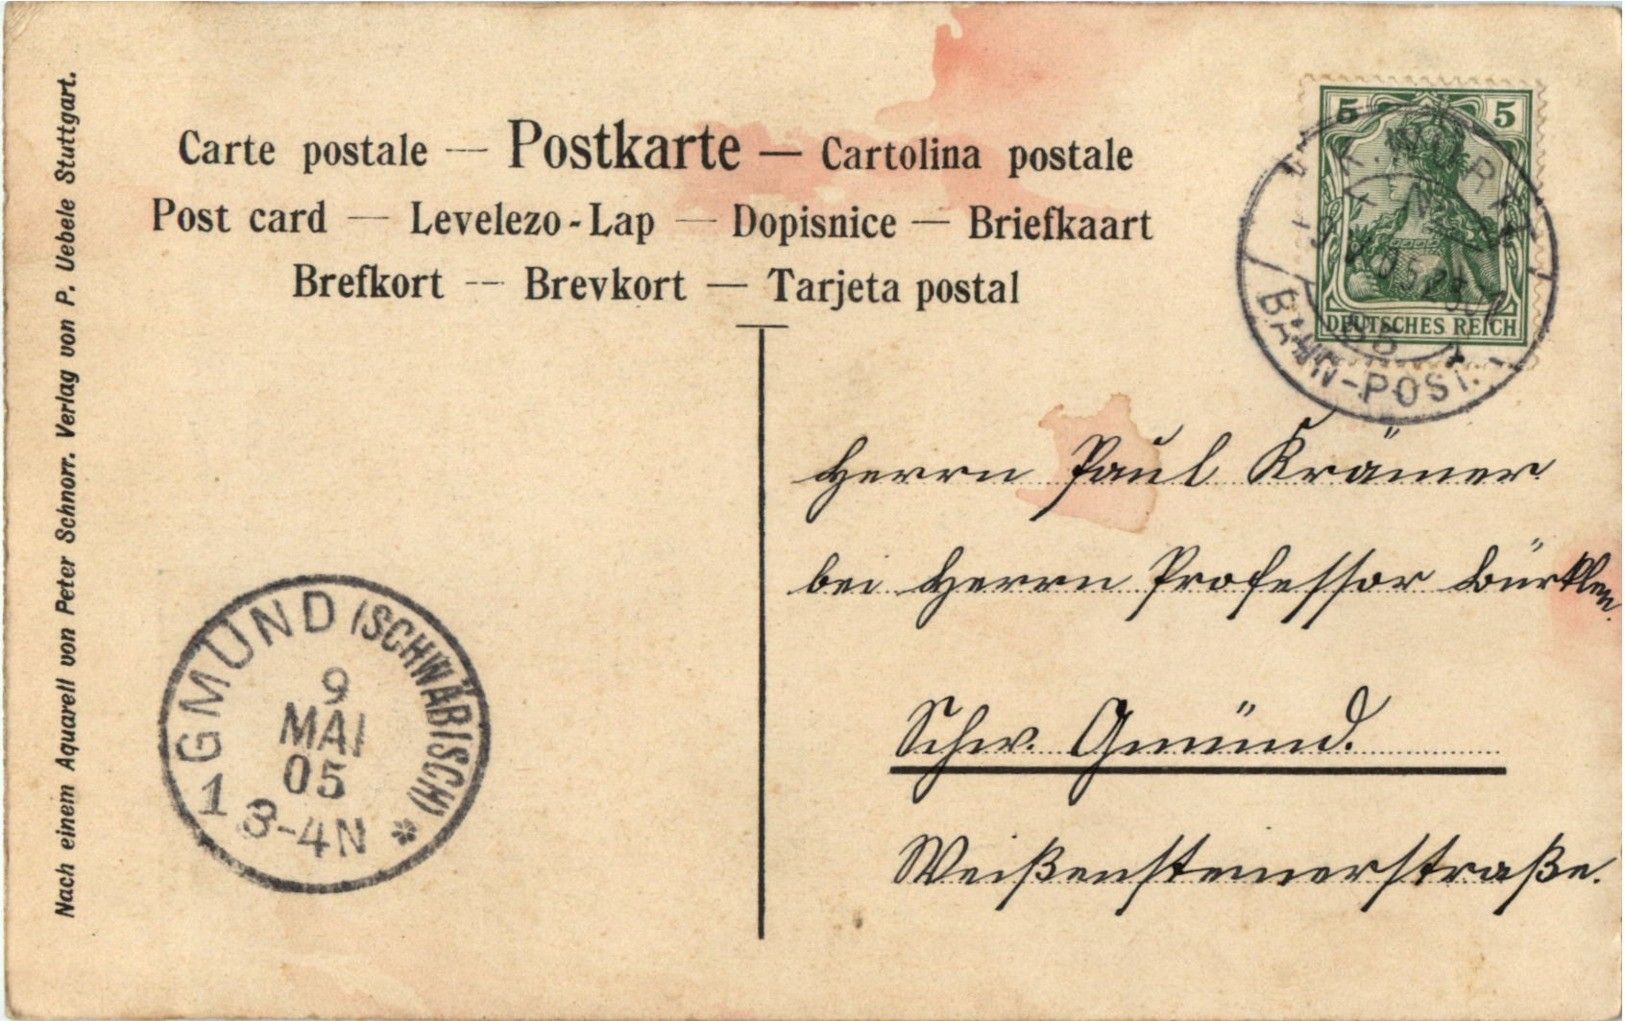 Carte postale — Postkarte — Cartolina postale
Post card — Levelezo-Lap — Dopisnice — Briefkaart
Brefkort — Brevkort — Tarjeta postal
Nach einem Aquarell von Peter Schnorr. Verlag von P. Uebele Stuttgart.
5 5
DEUTSCHES REICH
K. WÜRTT.
BAHN-POST.
Herrn Paul Krämer
bei Herrn Professor Bürklen.
Schw. Gmünd.
Weißensteinerstraße.
GMÜND (SCHWÄBISCH)
9
MAI
05
1 3-4N *